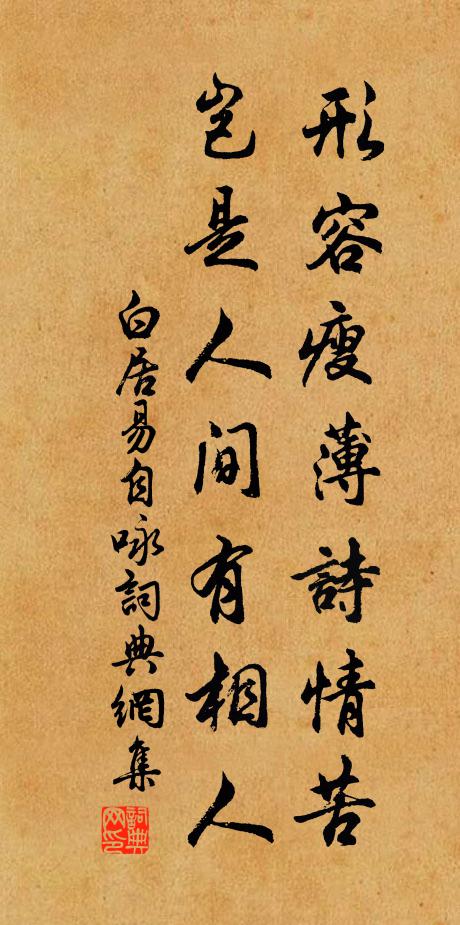 形容瘦薄詩情苦
豈是人間有相人
白居易自咏詞典網集
詞典网印